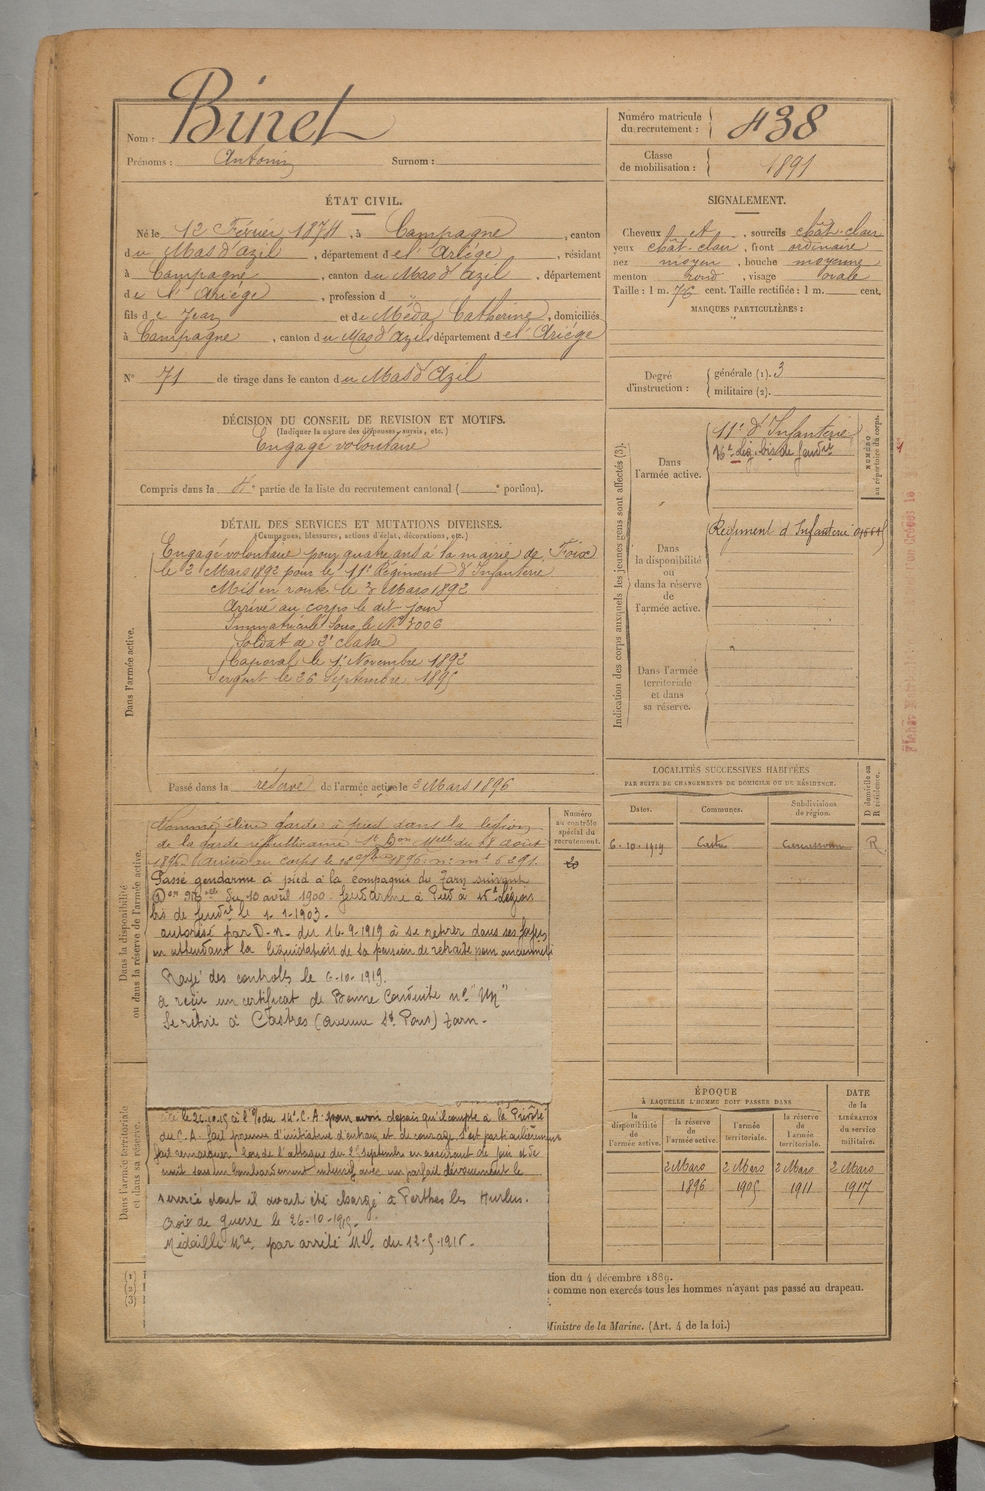 Nom : Binet
Prénoms : Antonin Surnom :
Numéro matricule du recrutement : 438
Classe de mobilisation : 1891
ÉTAT CIVIL.
Né le 12 Février 1874, à Campagne, canton
du Mas d'Azil, département de l'Ariège, résidant
à Campagne, canton du Mas d'Azil, département
de l'Ariège, profession d "
fils de Jean et de Méda Catherine, domiciliés
à Campagne, canton du Mas d'Azil, département de l'Ariège
N° 71 de tirage dans le canton du Mas d'Azil
DÉCISION DU CONSEIL DE REVISION ET MOTIFS.
(Indiquer la nature des dispenses, sursis, etc.)
Engagé volontaire
Compris dans la 4e partie de la liste du recrutement cantonal ( portion).
DÉTAIL DES SERVICES ET MUTATIONS DIVERSES.
(Campagnes, blessures, actions d'éclat, décorations, etc.)
Dans l'armée active.
Engagé volontaire pour quatre ans à la mairie de Foix
le 2 Mars 1892 pour le 11e Régiment d'Infanterie
Mis en route le 3 Mars 1892
Arrivé au corps le dit jour
Immatriculé sous le N° 4006
Soldat de 2e classe
Caporal le 1er Novembre 1892
Sergent le 26 Septembre 1895
Passé dans la réserve de l'armée active le 2 Mars 1896
Dans la disponibilité ou dans la réserve de l'armée active.
Nommé élève garde à pied dans la légion
de la garde républicaine Melle du 28 août
1896. Arrivé au corps le 1896. n° ml 6291.
Passé gendarme à pied à la compagnie du Tarn suivant
Don Melle du 10 avril 1900. Gendarme à Pied à 16e Légion
bis de Gendie le 1-1-1903.
autorisé par D.M. du 16-9-1919 à se retirer dans ses foyers
en attendant la liquidation de sa pension de retraite pour ancienneté
Rayé des controles le 6-10-1919.
a reçu un certificat de Bonne Conduite
Se retire à Castres (avenue St Pons) Tarn.
Numéro au contrôle spécial du recrutement.
Dans l'armée territoriale et dans sa réserve.
le 26.10.15 à l'O/ du 16e C.A. pour avoir depuis qu'il compte à la Prévôté
du C.A. fait preuve d'initiative d'entrain et de courage. S'est particulièrement
fait remarquer lors de l'attaque du 25 septembre en assurant de jour et de
nuit sous un bombardement intensif avec un parfait dévouement le
service dont il avait été chargé à Perthes les Hurlus.
Croix de guerre le 26-10-1915.
Médaille Mre par arrêté Mel du
(1)
(2)
(3)
SIGNALEMENT.
Cheveux et, sourcils chât. clair
yeux chât. clair, front ordinaire
nez moyen, bouche moyenne
menton rond, visage ovale
Taille : 1 m. 76 cent. Taille rectifiée : 1 m. cent.
MARQUES PARTICULIÈRES :
"
Degré d'instruction :
générale (1). 3
militaire (2).
Indication des corps auxquels les jeunes gens sont affectés (3).
NUMÉRO au répertoire du corps.
Dans l'armée active.
11e d'Infanterie
16e Lég. bis de Gendie
Dans la disponibilité ou dans la réserve de l'armée active.
Régiment d'Infanterie
Dans l'armée territoriale et dans sa réserve.
LOCALITÉS SUCCESSIVES HABITÉES
PAR SUITE DE CHANGEMENTS DE DOMICILE OU DE RÉSIDENCE.
D domicile ou R résidence.
Dates. Communes. Subdivisions de région.
6-10-1919 Castres Carcassonne R
ÉPOQUE
À LAQUELLE L'HOMME DOIT PASSER DANS
la disponibilité de l'armée active.
la réserve de l'armée active.
l'armée territoriale.
la réserve de l'armée territoriale.
DATE de la LIBÉRATION du service militaire.
2 Mars 1896
2 Mars 1905
2 Mars 1911
2 Mars 1917
tion du 4 décembre 1889.
comme non exercés tous les hommes n'ayant pas passé au drapeau.
Ministre de la Marine. (Art. 4 de la loi.)